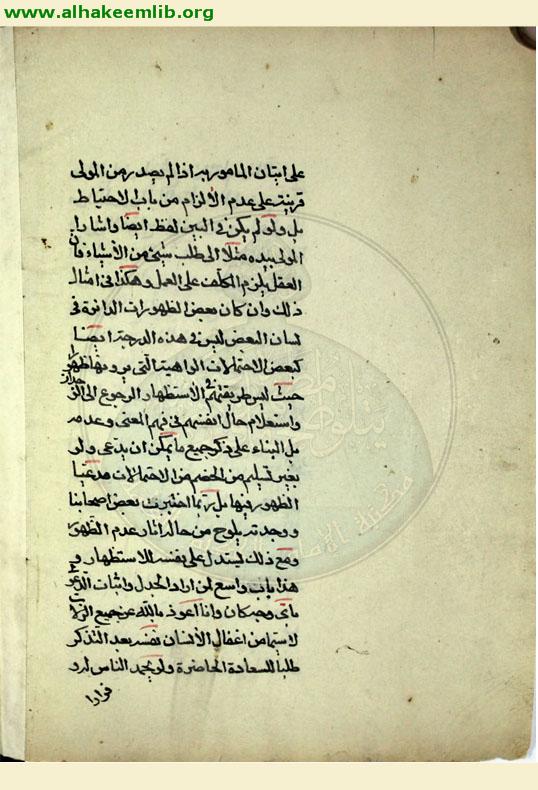 www.alhakeemlib.org
على اتيان المأمور به اذا لم يصدر من المولى
قرينة على عدم الالزام من باب الاحتياط
بل ولو لم يكن في البين لفظ ايضا واشار
المولى بيده مثلا الى طلب شيئ من الأشياء فان
العقل يلزم المكلف على العمل وهكذا في امثال
ذلك وان كان بعض الظهورات الدائرة في
لسان البعض ليس في هذه الدرجة ايضا
كبعض الاحتمالات الواهية التي يرونها ظهورا
حيث ليس طريقتهم في الأستظهار الرجوع الى
واستعلام حال انفسهم في فهم المعنى وعدمه
بل البناء على ذكر جميع ما يمكن ان يدعى ولو
بغير تسليم من الخصم من الاحتمالات مدعيا
الظهور فيها بل ربما اختبرت بعض اصحابنا
ووجدته يلوح من حاله اثار عدم الظهور
ومع ذلك يستدل على نفسه للاستظهار و
هذا باب واسع لمن اراد الجدل واثبات الدعوى
باى وجه كان وانا اعوذ بالله عن جميع الزلات
لا سيما من اغفال الأنسان نفسه بعد التذكر
طلبا للسعادة الحاضرة ولو بحمد الناس له و